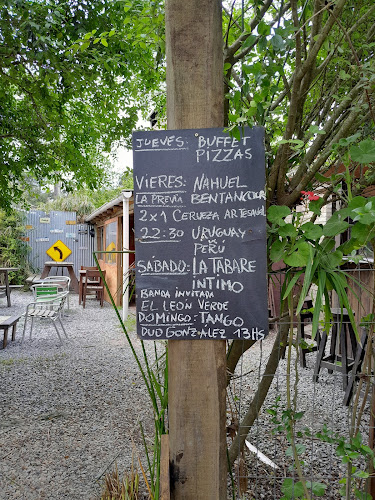 JUEVES: "BUFFET
PIZZAS
VIERES: NAHUEL
LA PREVIA BENTANCOUR
2x1 CERVEZA ARTESANAL
22:30 URUGUAY
PERÚ
SABADO: LA TABARE
INTIMO
BANDA INVITADA
EL LEON VERDE
DOMINGO: TANGO
DUO GONZALEZ 13HS